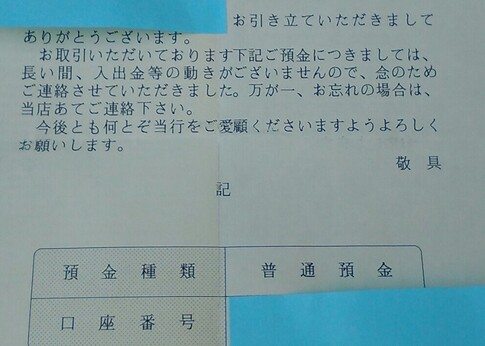 お引き立ていただきまして
ありがとうございます。
お取引いただいております下記ご預金につきましては、
長い間、入出金等の動きがございませんので、念のため
ご連絡させていただきました。万が一、お忘れの場合は、
当店あてご連絡下さい。
今後とも何とぞ当行をご愛顧くださいますようよろしく
お願いします。
敬具
記
預金種類 普通預金
口座番号